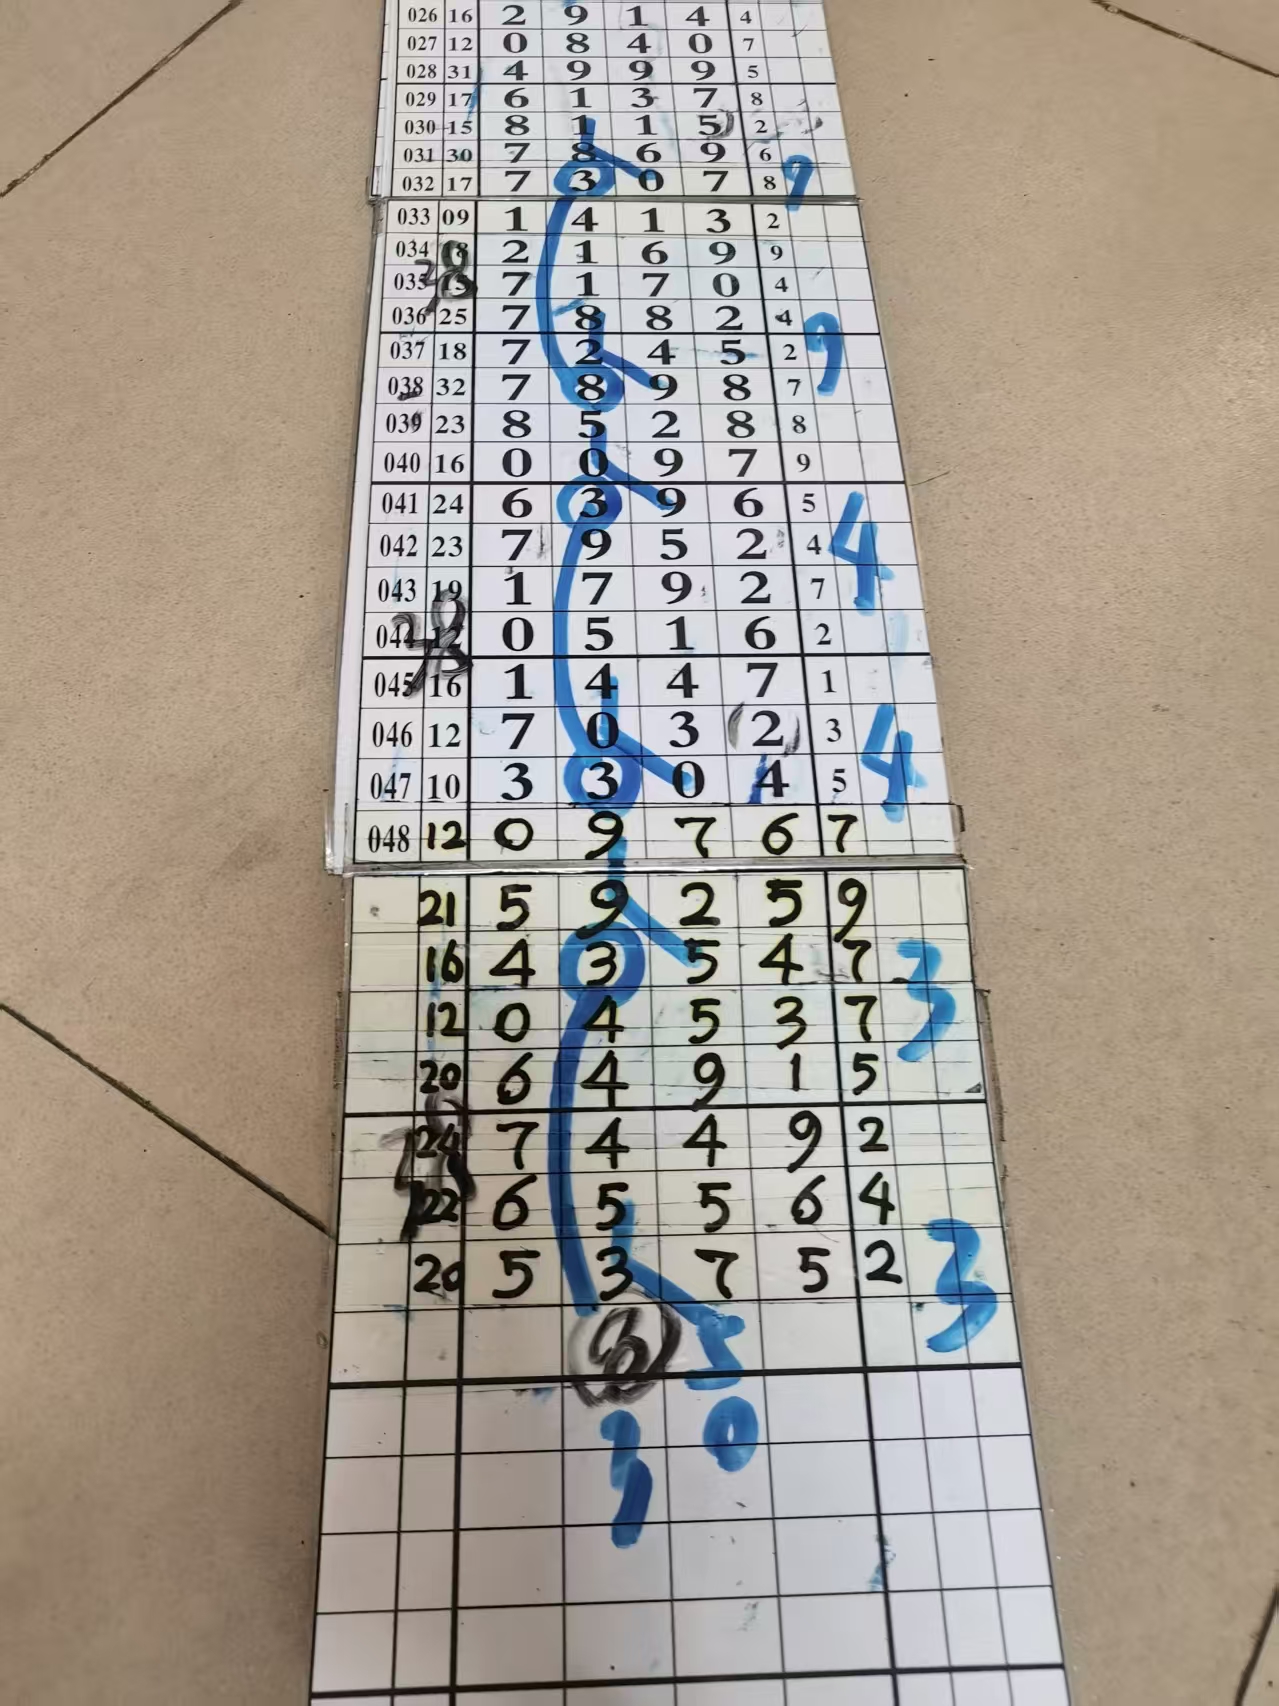 026 16 2 9 1 4 4
027 12 0 8 4 0 7
028 31 4 9 9 9 5
029 17 6 1 3 7 8
030 15 8 1 1 5 2
031 30 7 8 6 9 6
032 17 7 3 0 7 8 9
033 09 1 4 1 3 2
034 18 2 1 6 9 9
035 15 7 1 7 0 4
036 25 7 8 8 2 4 9
037 18 7 2 4 5 2
038 32 7 8 9 8 7
039 23 8 5 2 8 8
040 16 0 0 9 7 9
041 24 6 3 9 6 5
042 23 7 9 5 2 4 4
043 19 1 7 9 2 7
044 12 0 5 1 6 2
045 16 1 4 4 7 1
046 12 7 0 3 (2) 3 4
047 10 3 3 0 4 5
048 12 0 9 7 6 7
21 5 9 2 5 9
16 4 3 5 4 7 3
12 0 4 5 3 7
20 6 4 9 1 5
24 7 4 4 9 2
22 6 5 5 6 4
20 5 3 7 5 2 3
5
3 0